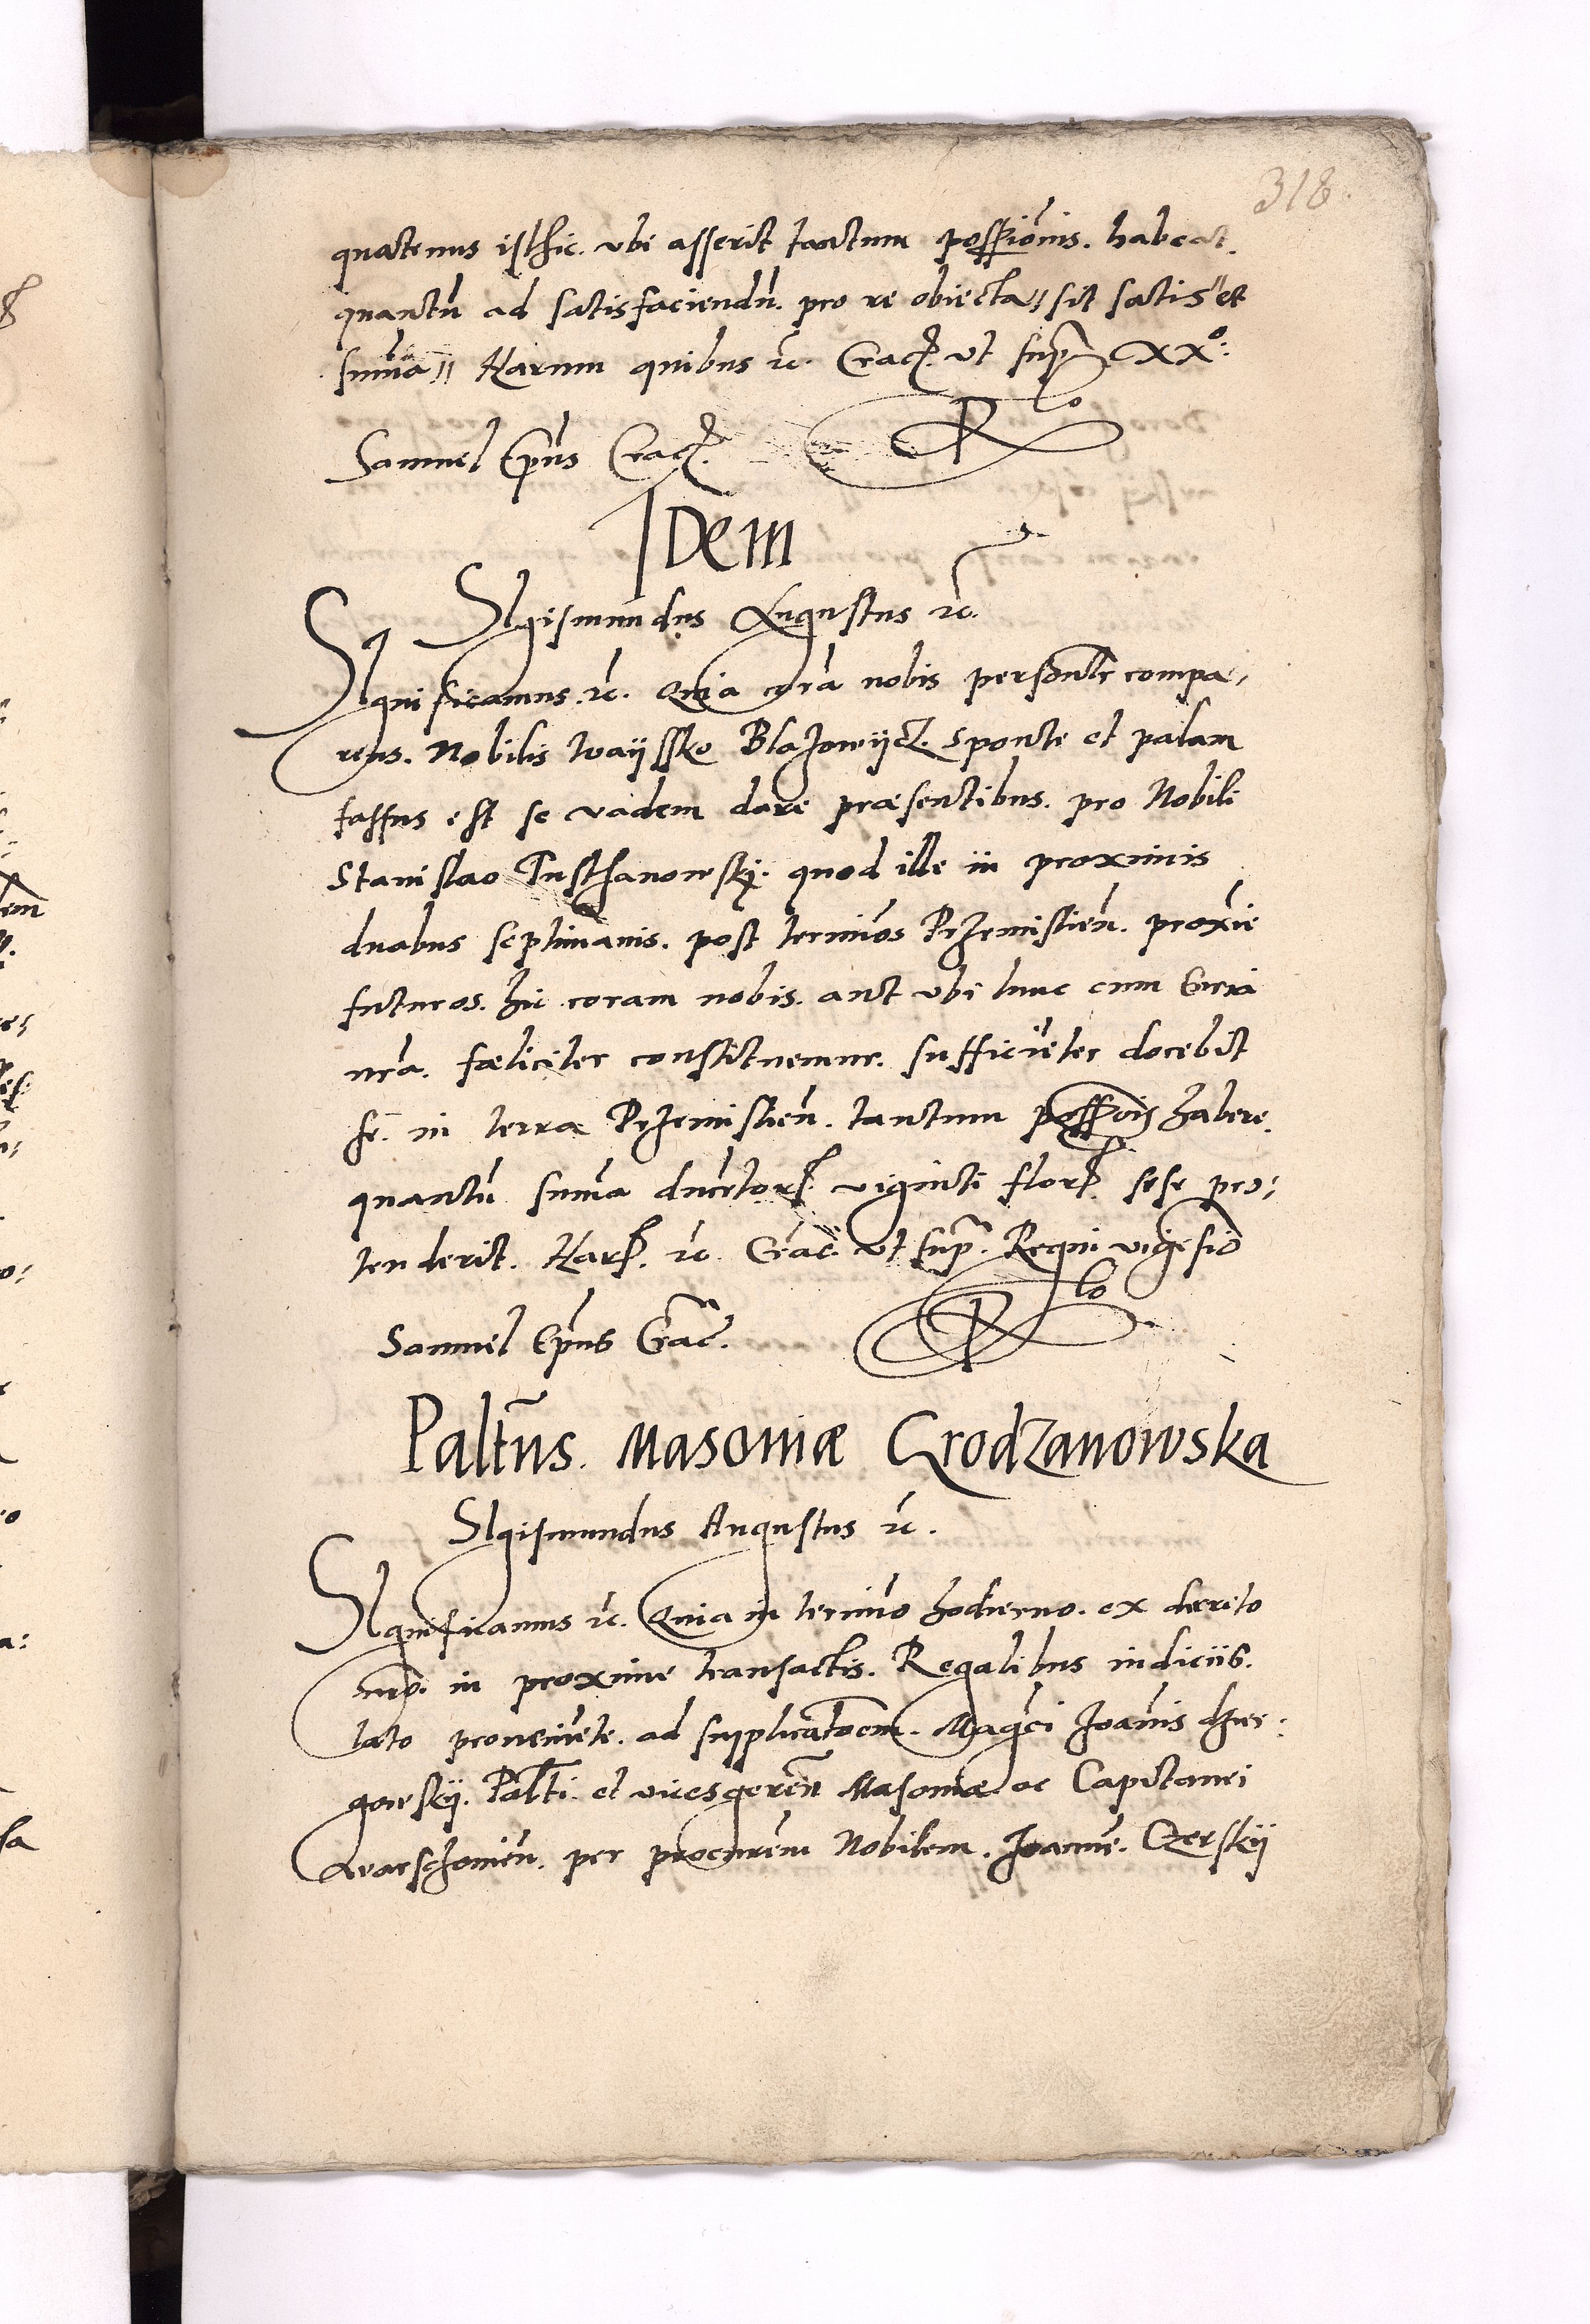 318
quatenus isthic. ubi asserit tantum possioīnis. habeat.
quantū ad satisfaciendū. pro re obiecta // sit satis et
suma͞ // Harum quibus ꝛc. Crac. ut supᵃ XXº:
Samuel Ep̄us Crac.
R lo
IDem
SIgismundus Augustus ꝛc.
SIgnificamus. ꝛc. Quia cora͞ nobis personlr compa-
rens. Nobilis Iwayssko Blazowÿcz. sponte et palam
fassus est se vadem dare præsentibus. pro Nobili
Stanislao Tusthanowskÿ. quod ille in proximis
duabus septimanis. post termi͞os Przemislien͞. proxi͞e
futuros. hic coram nobis. aut ubi tunc cum Curia
nr͞a. fæliciter constituemur. sufficie͞ter docebit
se. in terra Przemislien͞. tantum possoīs habere.
quantū suma ducētorꝝ viginti florꝝ. sese pro:
tenderit. Harꝝ. ꝛc. Crac. ut supᵃ. Regni vigesi͞o
Samuel Ep̄us Crac.
R lo
Palt͞us. Masoviæ Grodzanowska
SIgismundus Augustus ꝛc.
SIgnificamus ꝛc. Quia in termi͞o hodierno. ex decreto
nr͞o. in proxime transactis. Regalibus iudiciis.
lato proveni͞ete. ad supplicatoēm. Magci Joan͞is dzier:
gowskÿ. Palti. et vicesgeren͞ Masoviæ ac Capitanei
Warschovien͞. per procurem Nobilem. Joanne͞. Czerskÿ